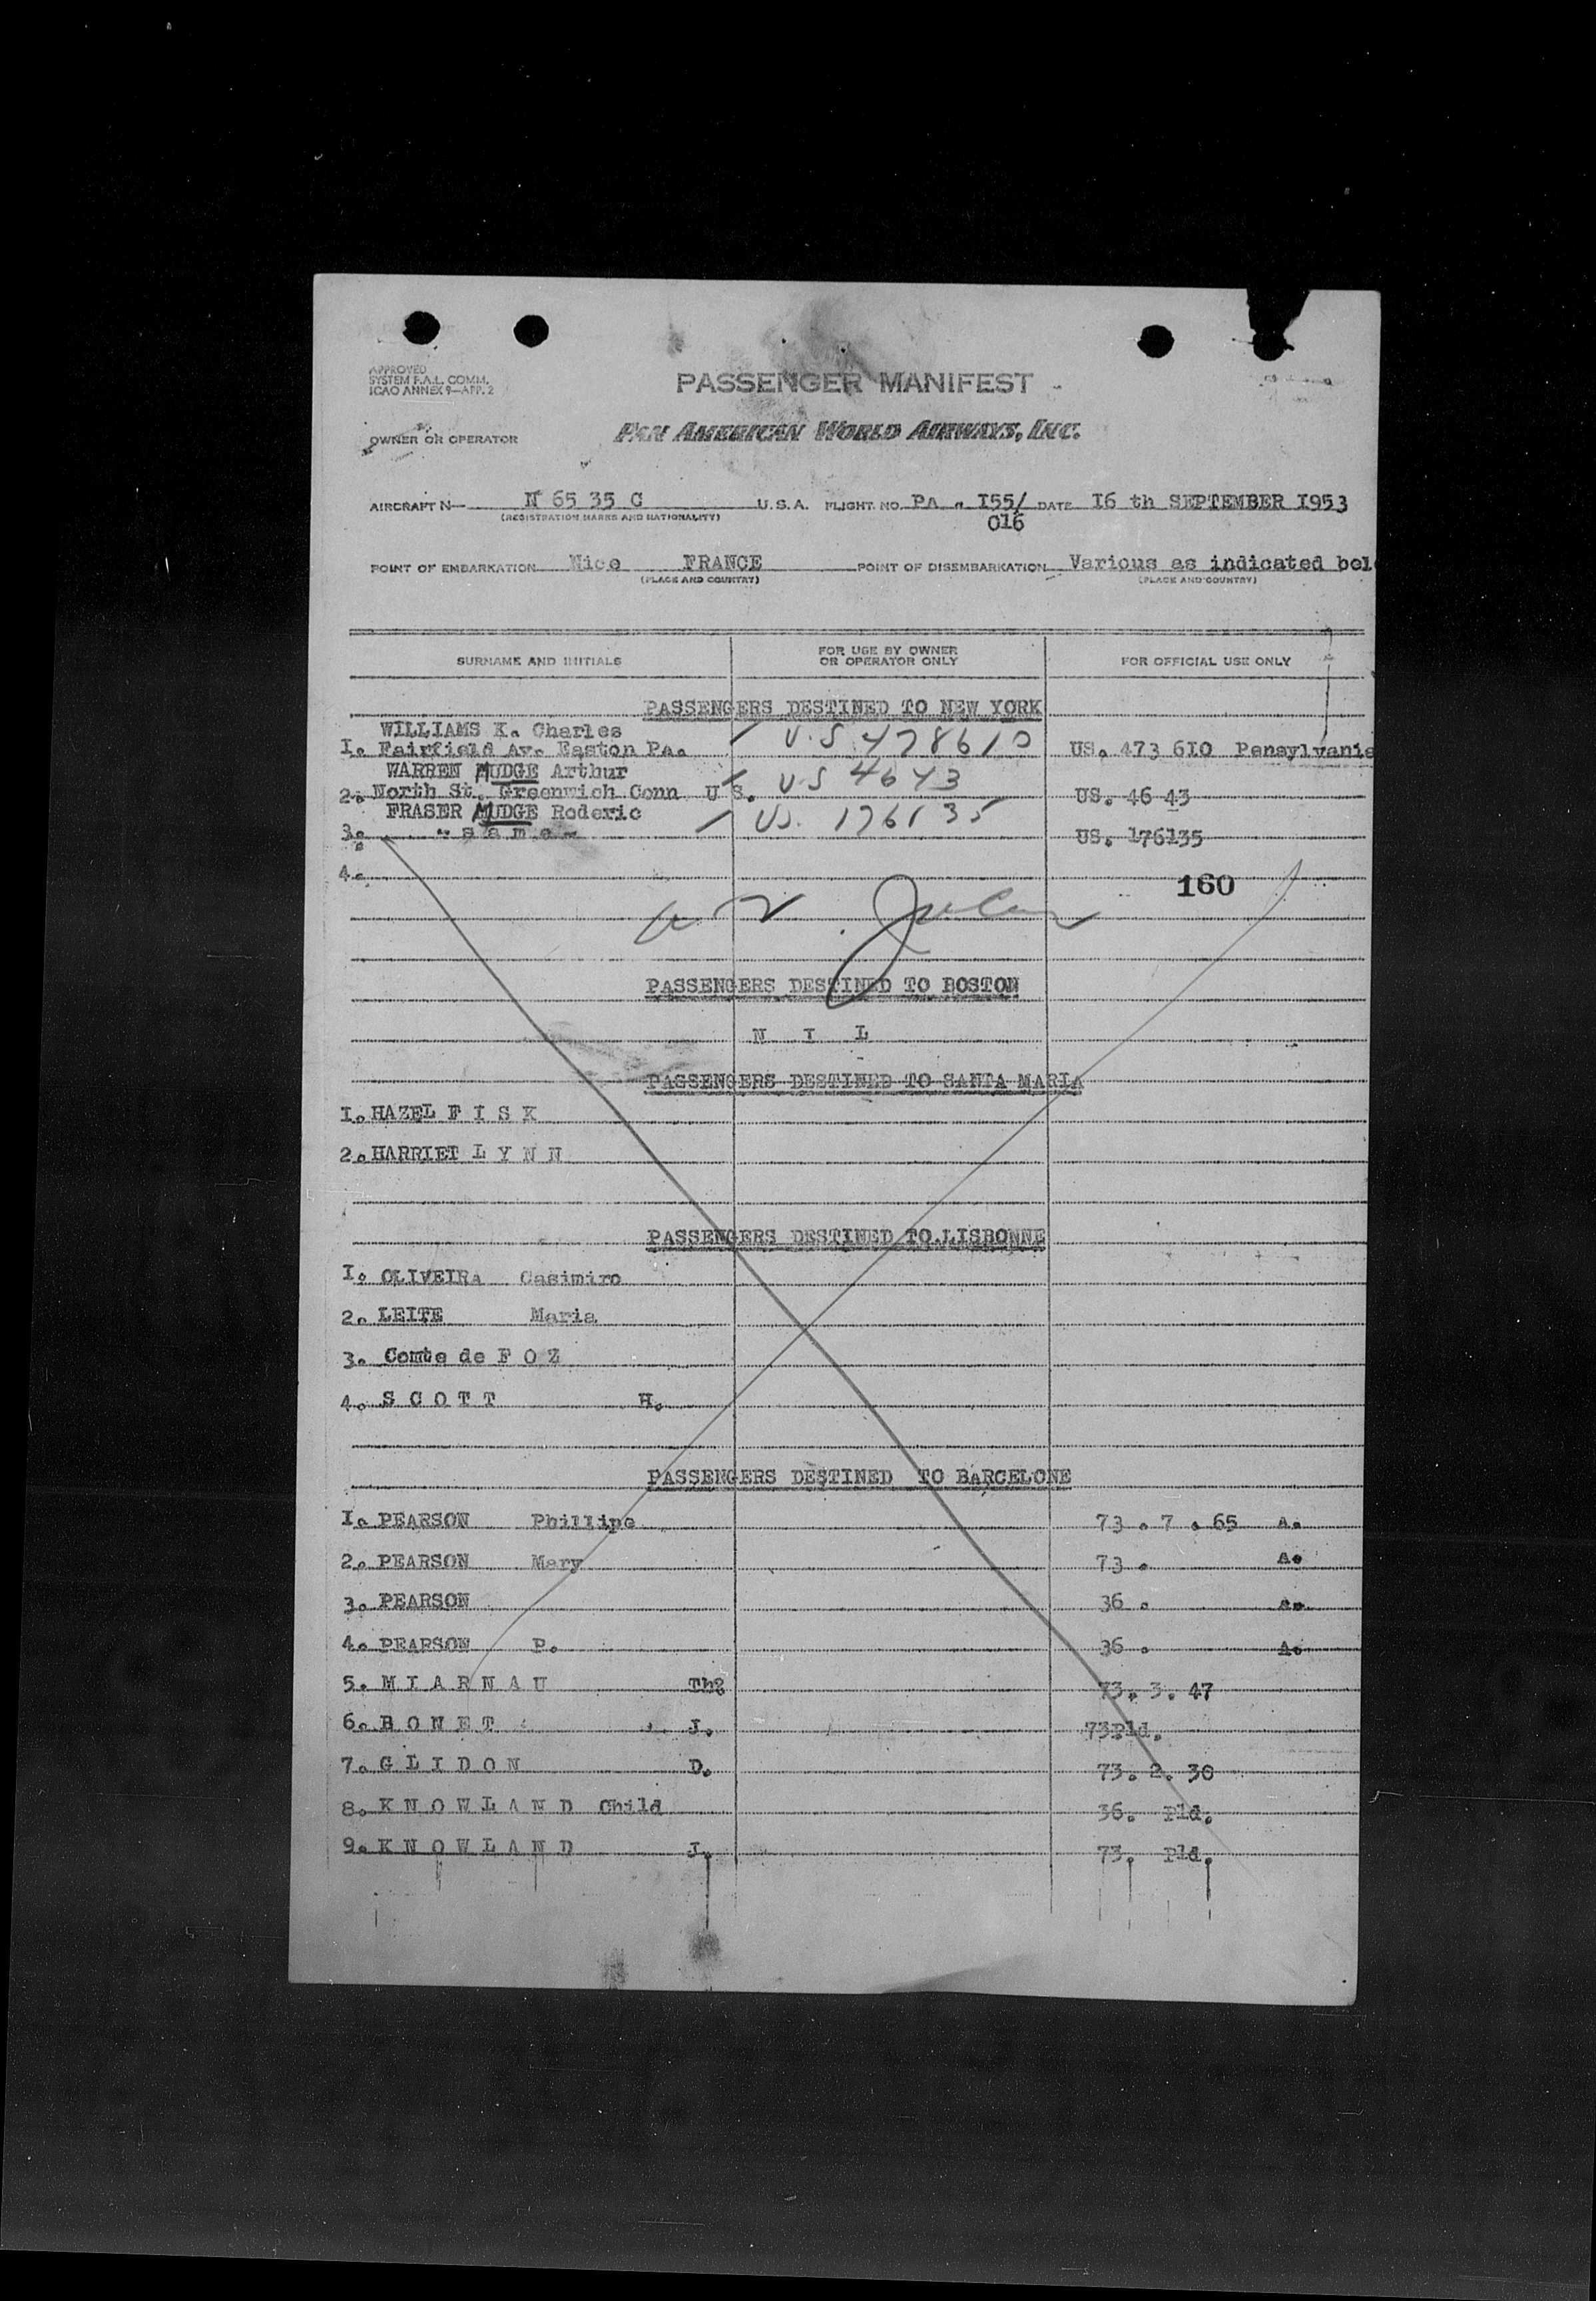 APPROVED
SYSTEM F.A.L. COMM.
ICAO ANNEX 9—APP. 2
PASSENGER MANIFEST
OWNER OR OPERATOR PAN AMERICAN WORLD AIRWAYS, INC.
AIRCRAFT N— N 65 35 C U.S.A. FLIGHT NO. PA - I55/ DATE I6 th SEPTEMBER I953
(REGISTRATION MARKS AND NATIONALITY) 016
POINT OF EMBARKATION Nice FRANCE POINT OF DISEMBARKATION Various as indicated bel
(PLACE AND COUNTRY) (PLACE AND COUNTRY)
SURNAME AND INITIALS FOR USE BY OWNER OR OPERATOR ONLY FOR OFFICIAL USE ONLY
PASSENGERS DESTINED TO NEW YORK
WILLIAMS K. Charles
I. Fairfield Av. Easton PA. U.S 478610 US. 473 6I0 Pensylvania
WARREN MUDGE Arthur
2. North St. Greenwich Conn U S. US 4643 US. 46 43
FRASER MUDGE Roderic
3. - s a m e - US. 176135 US. 176135
4.
160
PASSENGERS DESTINED TO BOSTON
N I L
PASSENGERS DESTINED TO SANTA MARIA
I. HAZEL F I S K
2. HARRIET L Y N N
PASSENGERS DESTINED TO LISBONNE
I. OLIVEIRA Casimiro
2. LEITE Maria
3. Comte de F O Z
4. S C O T T H.
PASSENGERS DESTINED TO BARCELONE
I. PEARSON Phillipe 73 . 7 . 65 A.
2. PEARSON Mary 73 . A.
3. PEARSON 36 . A.
4. PEARSON P. 36 . A.
5. M I A R N A U Th? 73. 3. 47
6. B O N E T J. 73Pld.
7. G L I D O N D. 73. 2. 30
8. K N O W L A N D Child 36. Pld.
9. K N O W L A N D J. 73. Pld.